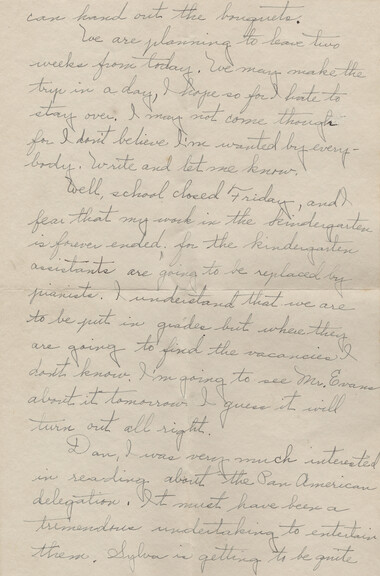 can hand out the bouquets.
We are planning to leave two
weeks from today. We may make the
trip in a day, I hope so for I hate to
stay over. I may not come though
for I don't believe I'm wanted by every-
body. Write and let me know.
Well, school closed Friday, and I
fear that my work in the kindergarten
is forever ended, for the kindergarten
assistants are going to be replaced by
pianists. I understand that we are
to be put in grades but where they
are going to find the vacancies I
don't know. I'm going to see Mr. Evans
about it tomorrow. I guess it will
turn out all right.
Dan, I was very much interested
in reading about the Pan American
delegation. It must have been a
trimendous undertaking to entertain
them. Sylva is getting to be quite